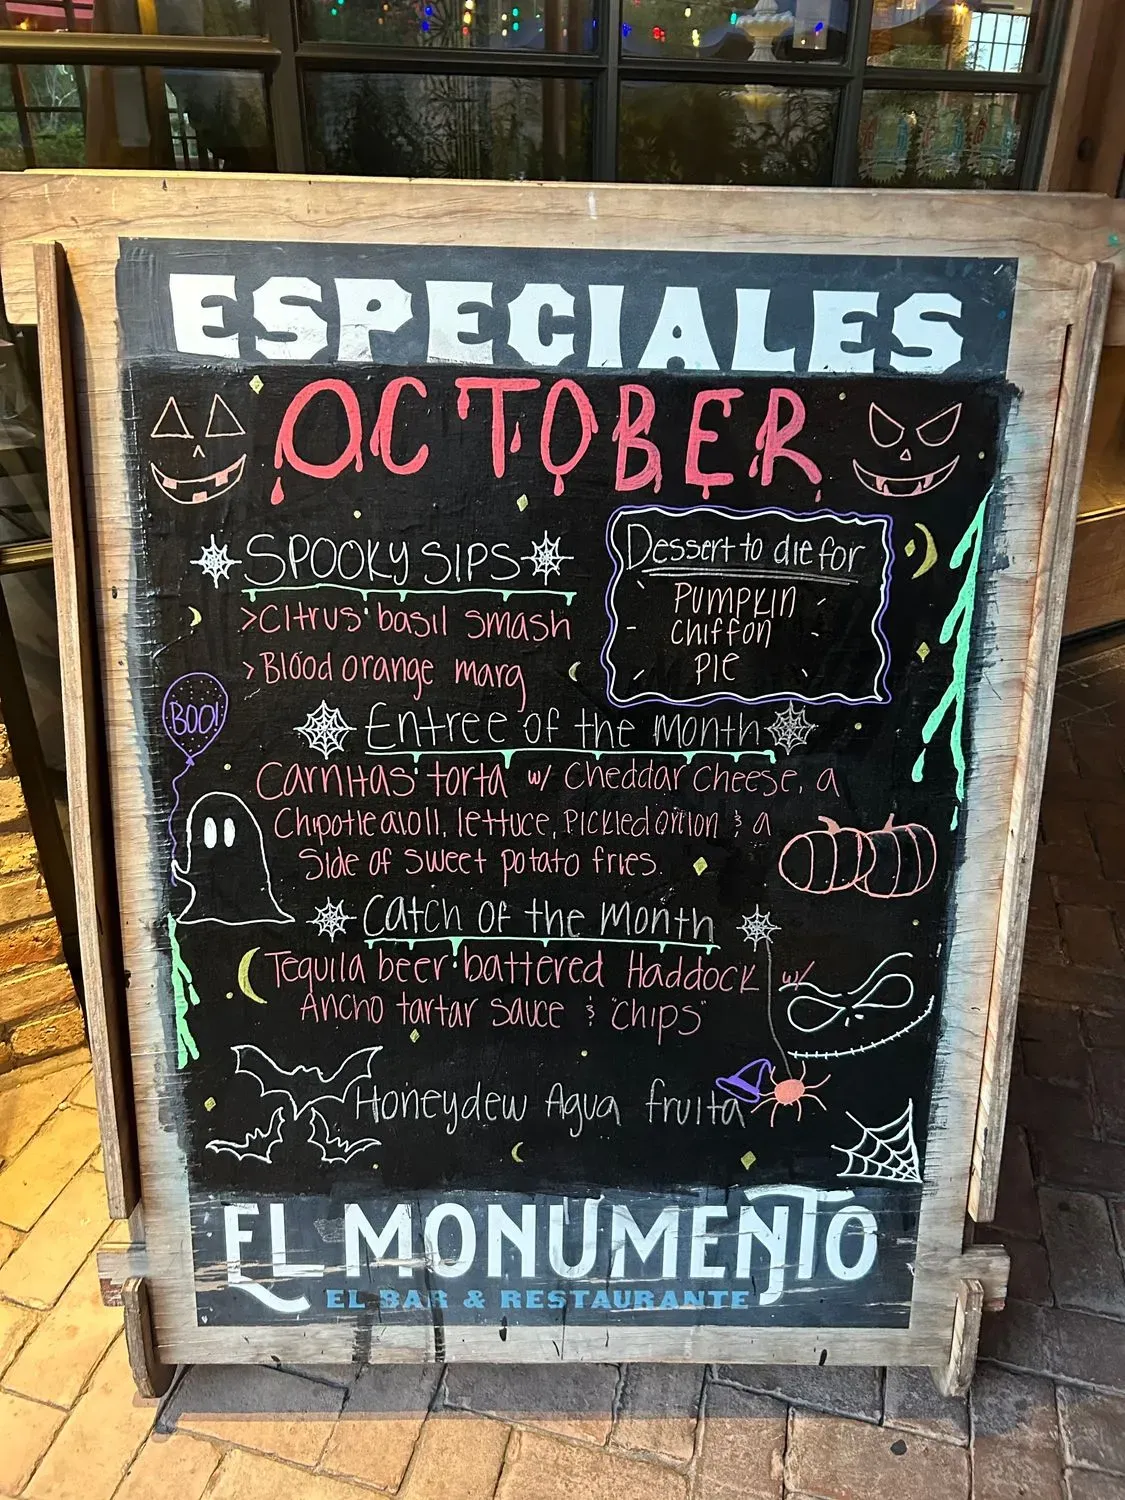 ESPECIALES
OCTOBER
SPOOKY SIPS
>Citrus basil smash
>Blood orange marg
Dessert to die for
PUMPKIN
CHIFFON
PIE
BOO!
Entree of the Month
Carnitas torta w/ Cheddar Cheese, a
Chipotle aioli, lettuce, Pickled onion & a
Side of sweet potato fries.
Catch of the Month
Tequila beer battered Haddock w/
Ancho tartar sauce & "Chips"
Honeydew Agua fruita
EL MONUMENTO
EL BAR & RESTAURANTE